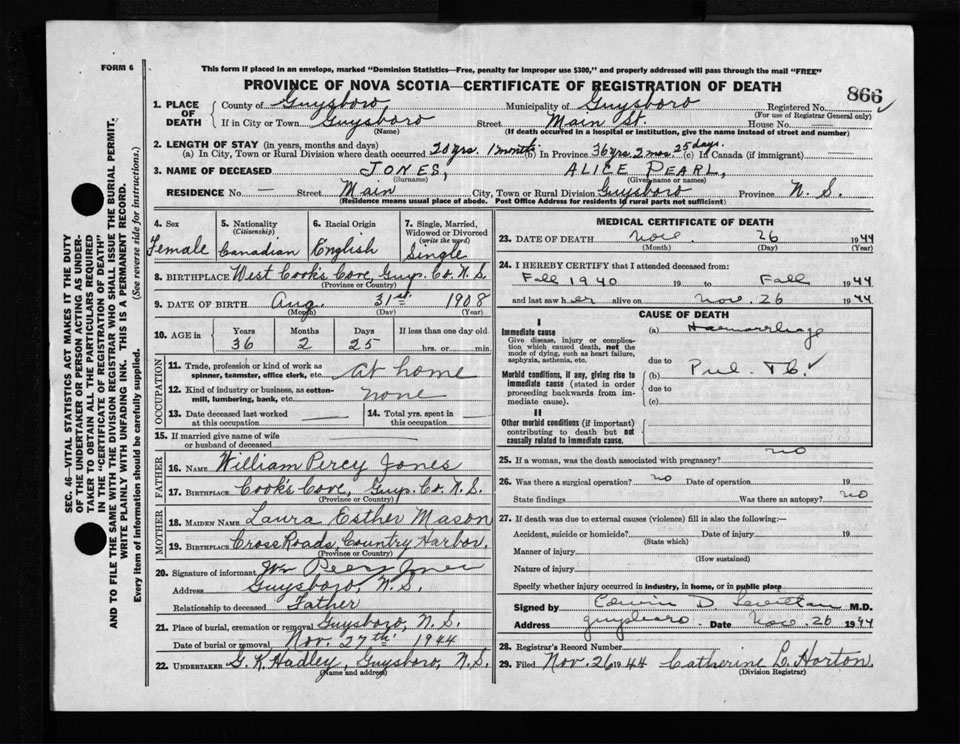 FORM 6
This form if placed in an envelope, marked "Dominion Statistics—Free, penalty for improper use $300," and properly addressed will pass through the mail "FREE"
PROVINCE OF NOVA SCOTIA—CERTIFICATE OF REGISTRATION OF DEATH
866
1. PLACE OF DEATH { County of Guysboro Municipality of Guysboro Registered No.
(For use of Registrar General only)
If in City or Town Guysboro Street Main St. House No. —
(Name) (If death occurred in a hospital or institution, give the name instead of street and number)
2. LENGTH OF STAY (in years, months and days)
(a) In City, Town or Rural Division where death occurred 20 yrs. 1 month (b) In Province 36 yrs 2 mos. 25 days. (c) In Canada (if immigrant) —
3. NAME OF DECEASED JONES, ALICE PEARL,
(Surname) (Given name or names)
RESIDENCE No. — Street Main City, Town or Rural Division Guysboro Province N. S.
(Residence means usual place of abode. Post Office Address for residents in rural parts not sufficient)
4. Sex Female
5. Nationality (Citizenship) Canadian
6. Racial Origin English
7. Single, Married, Widowed or Divorced (write the word) Single
8. BIRTHPLACE West Cook's Cove, Guys. Co. N. S.
(Province or Country)
9. DATE OF BIRTH Aug. 31st 1908
(Month) (Day) (Year)
10. AGE in Years 36 Months 2 Days 25 If less than one day old hrs. or min.
OCCUPATION
11. Trade, profession or kind of work as spinner, teamster, office clerk, etc. At home
12. Kind of industry or business, as cotton-mill, lumbering, bank, etc. none
13. Date deceased last worked at this occupation — 14. Total yrs. spent in this occupation —
15. If married give name of wife or husband of deceased —
FATHER
16. NAME William Percy Jones
17. BIRTHPLACE Cook's Cove, Guys. Co. N. S.
(Province or Country)
MOTHER
18. MAIDEN NAME Laura Esther Mason
19. BIRTHPLACE Cross Roads, Country Harbor.
(Province or Country)
20. Signature of informant Wm Percy Jones
Address Guysboro, N. S.
Relationship to deceased Father
21. Place of burial, cremation or removal Guysboro, N. S.
Date of burial or removal Nov. 27th 1944
22. UNDERTAKER G. K. Hadley, Guysboro, N. S.
(Name and address)
MEDICAL CERTIFICATE OF DEATH
23. DATE OF DEATH Nov. 26 1944
(Month) (Day) (Year)
24. I HEREBY CERTIFY that I attended deceased from:
Fall 1940 19 to Fall 1944
and last saw her alive on Nov. 26 1944
CAUSE OF DEATH
I
Immediate cause (a) Haemorrhage
Give disease, injury or complication which caused death, not the mode of dying, such as heart failure, asphyxia, asthenia, etc.
due to
Morbid conditions, if any, giving rise to immediate cause (stated in order proceeding backwards from immediate cause).
(b) Pul. Tb.
due to
(c)
II
Other morbid conditions (if important) contributing to death but not causally related to immediate cause.
25. If a woman, was the death associated with pregnancy? no
26. Was there a surgical operation? no Date of operation 19
State findings Was there an autopsy? no
27. If death was due to external causes (violence) fill in also the following:—
Accident, suicide or homicide? Date of injury 19
(State which)
Manner of injury
(How sustained)
Nature of injury
Specify whether injury occurred in industry, in home, or in public place
Signed by Edwin D. M.D.
Address Guysboro. Date Nov. 26 1944
28. Registrar's Record Number
29. Filed Nov. 26 1944 Catherine L. Horton.
(Division Registrar)
SEC. 46—VITAL STATISTICS ACT MAKES IT THE DUTY
OF THE UNDERTAKER OR PERSON ACTING AS UNDER-
TAKER TO OBTAIN ALL THE PARTICULARS REQUIRED
IN THE "CERTIFICATE OF REGISTRATION OF DEATH"
AND TO FILE THE SAME WITH THE DIVISION REGISTRAR WHO SHALL ISSUE THE BURIAL PERMIT.
WRITE PLAINLY WITH UNFADING INK. THIS IS A PERMANENT RECORD.
Every item of information should be carefully supplied. (See reverse side for instructions.)